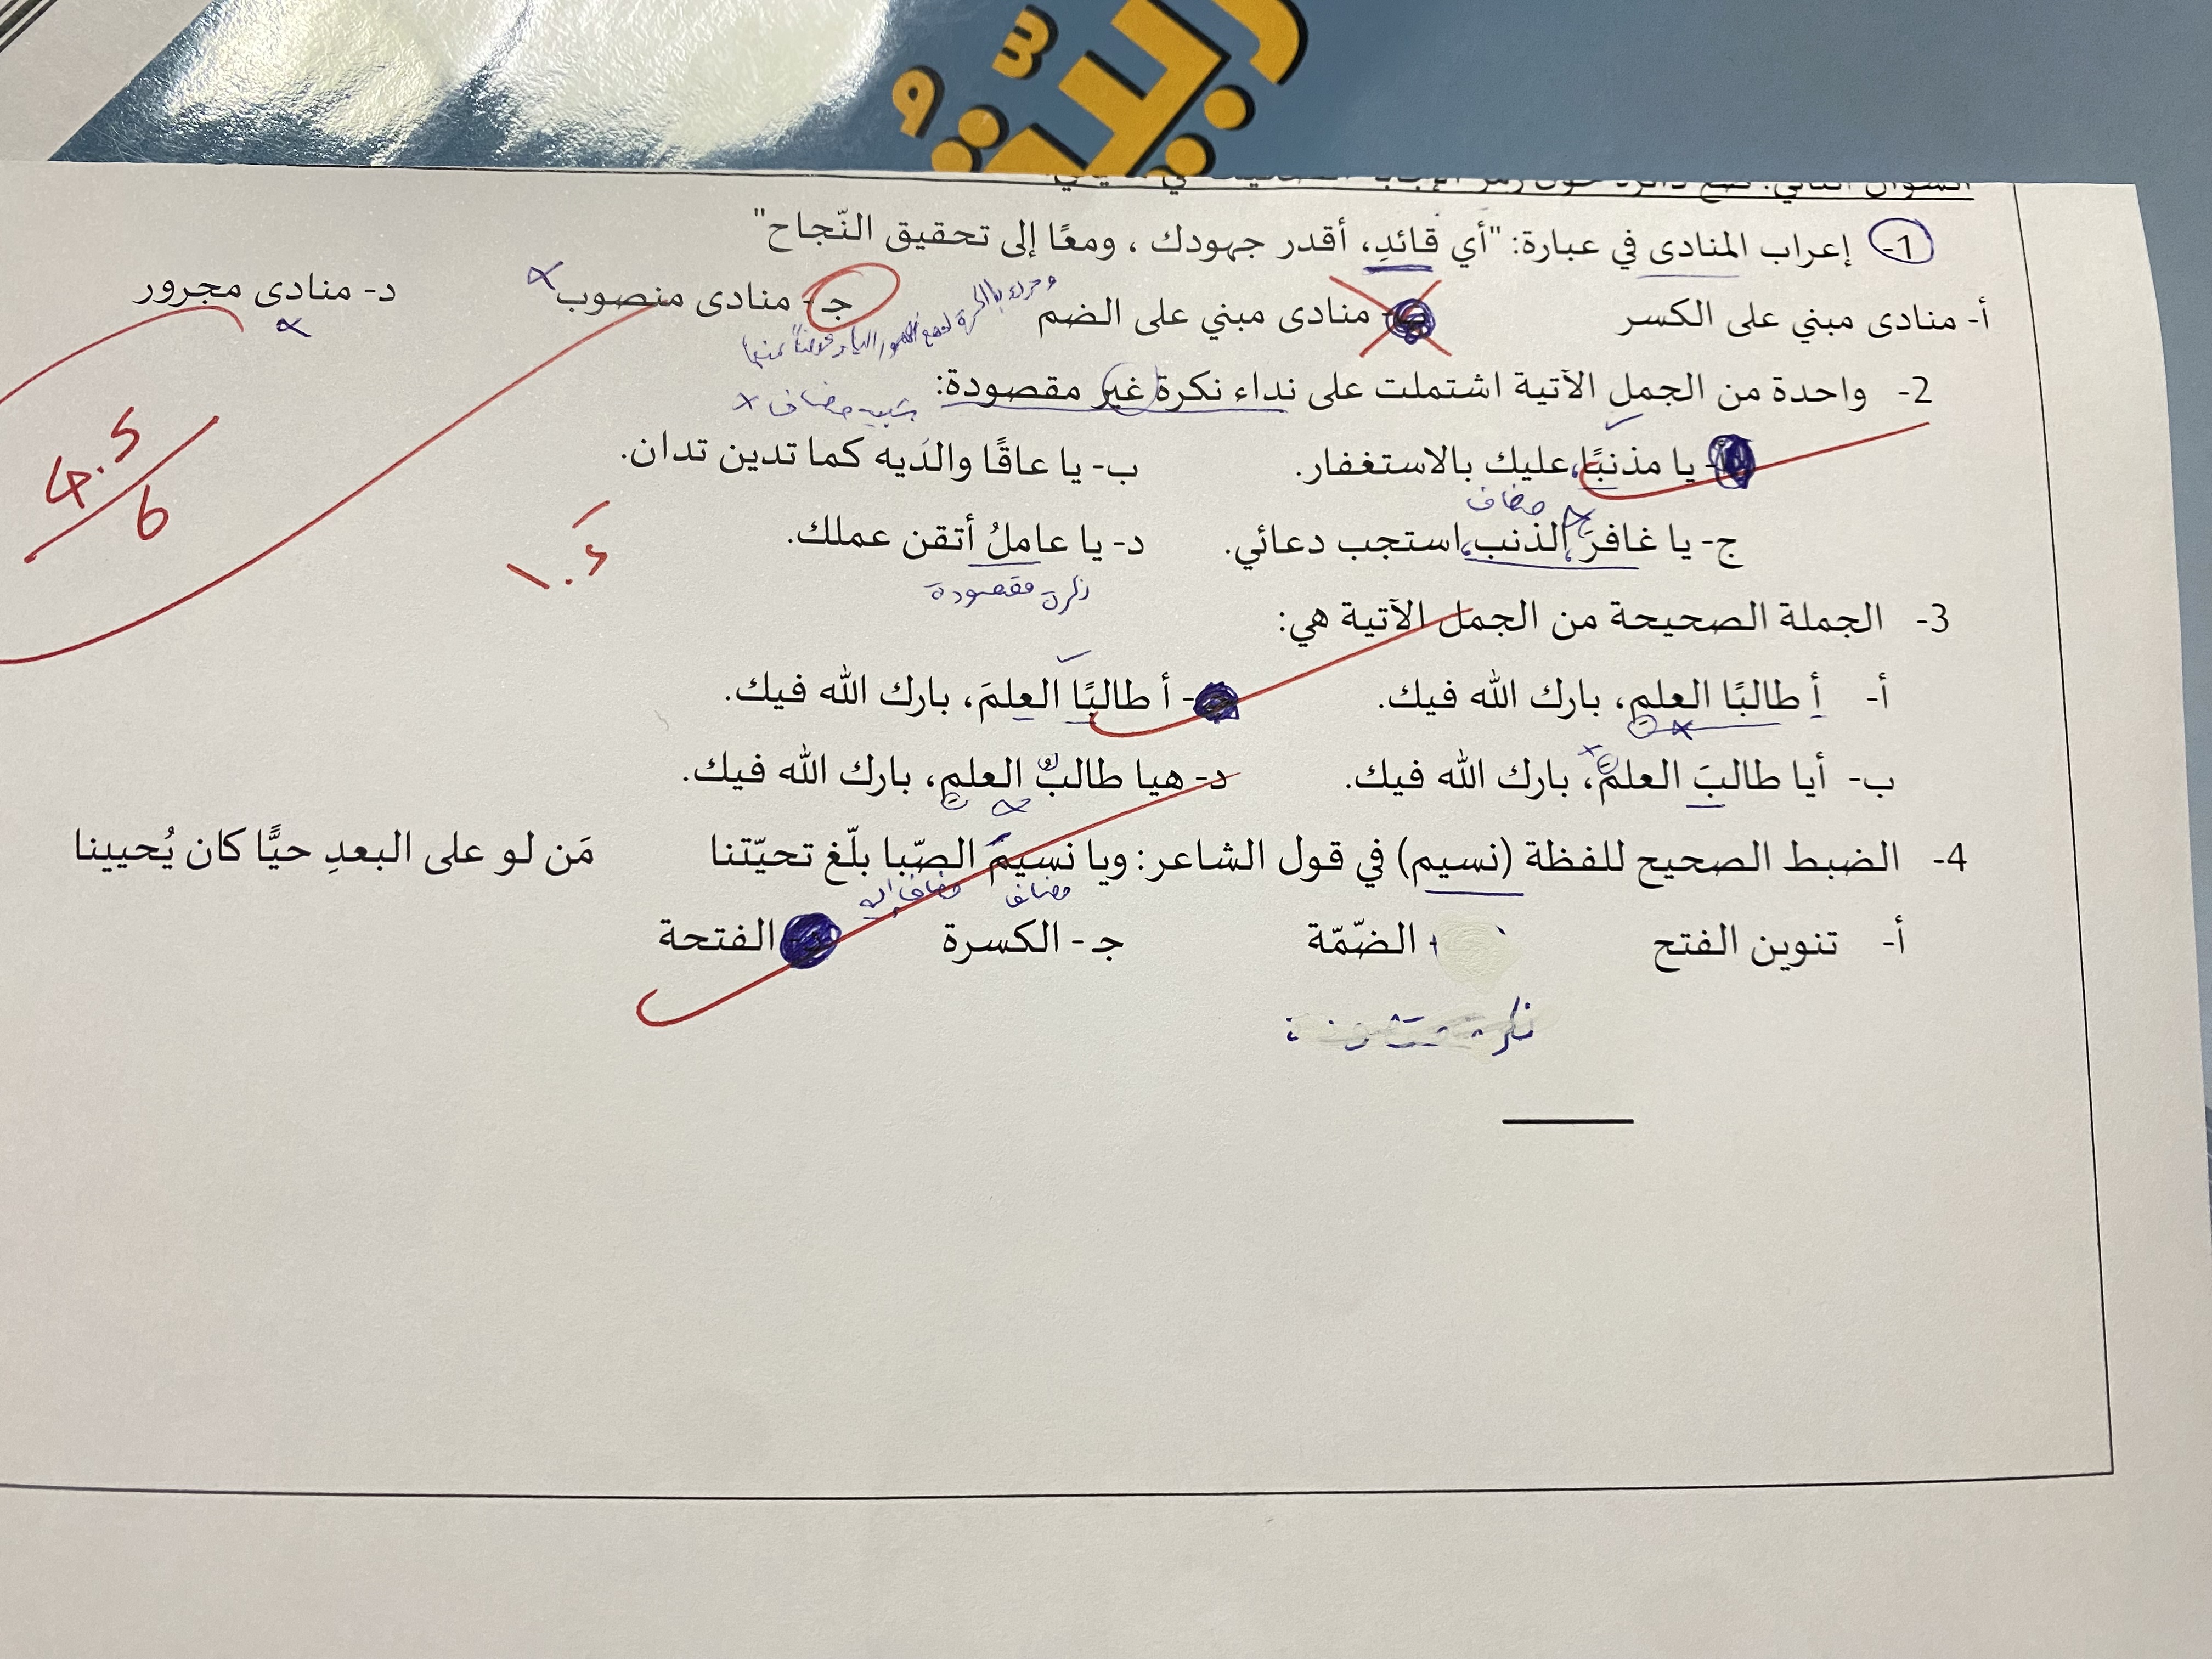 1- إعراب المنادى في عبارة: "أي قائدِ، أقدر جهودك ، ومعًا إلى تحقيق النّجاح"
أ- منادى مبني على الكسر منادى مبني على الضم جـ- منادى منصوب د- منادى مجرور
2- واحدة من الجمل الآتية اشتملت على نداء نكرة غير مقصودة:
شبيه مضاف
أ- يا مذنبًا، عليك بالاستغفار. ب- يا عاقًا والدَيه كما تدين تدان.
مضاف
4.5/6
1.5
ج- يا غافرَ الذنب، استجب دعائي. د- يا عاملُ أتقن عملك.
نكرة مقصودة
3- الجملة الصحيحة من الجمل الآتية هي:
أ- أ طالبًا العلمِ، بارك الله فيك. - أ طالبًا العلمَ، بارك الله فيك.
ب- أيا طالبَ العلمَ، بارك الله فيك. د- هيا طالبُ العلمِ، بارك الله فيك.
4- الضبط الصحيح للفظة (نسيم) في قول الشاعر: ويا نسيم الصّبا بلّغ تحيّتنا مَن لو على البعدِ حيًّا كان يُحيينا
مضاف مضاف إليه
أ- تنوين الفتح الضّمّة جـ- الكسرة الفتحة
نكرة